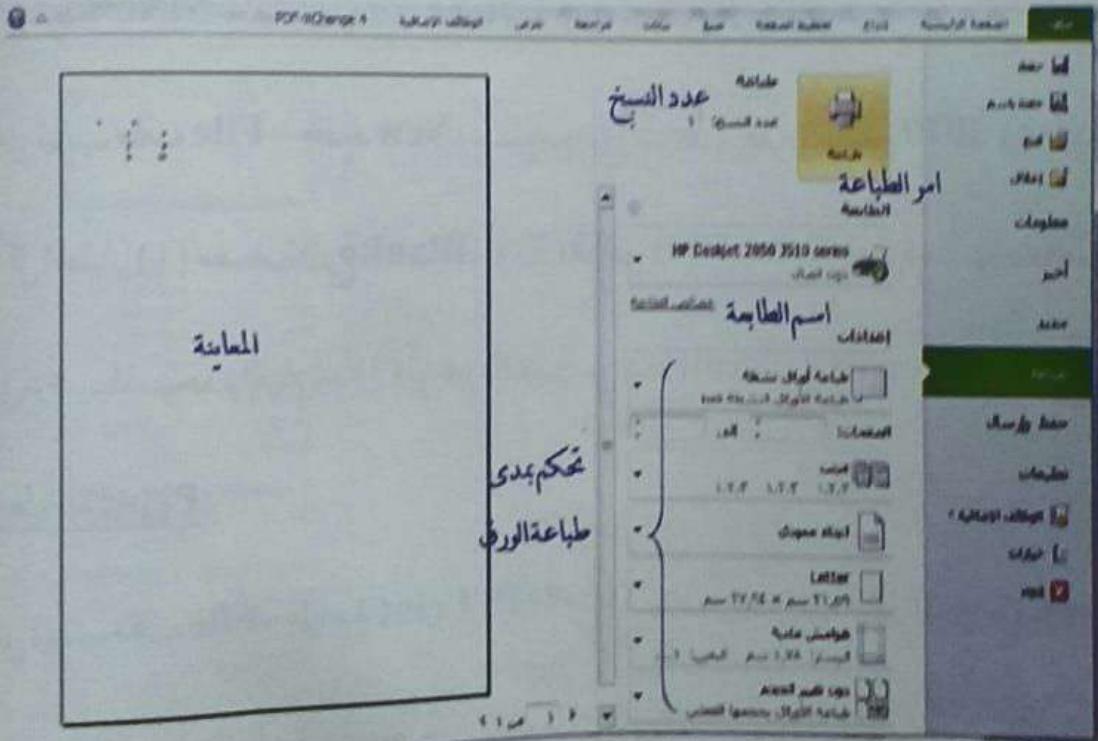 ملف الصفحة الرئيسية إدراج تخطيط الصفحة صيغ بيانات مراجعة عرض الوظائف الإضافية PDF-XChange 4
حفظ
حفظ باسم
فتح
إغلاق
معلومات
أخير
جديد
طباعة
حفظ وإرسال
تعليمات
الوظائف الإضافية
خيارات
إنهاء
طباعة
عدد النسخ: 1
عدد النسخ
طباعة
امر الطباعة
الطابعة
HP Deskjet 2050 J510 series
دون اتصال
خصائص الطابعة
اسم الطابعة
إعدادات
طباعة أوراق نشطة
طباعة الأوراق النشطة فقط
الصفحات: إلى
مرتب
١،٢،٣ ١،٢،٣ ١،٢،٣
اتجاه عمودي
Letter
٢١,٥٩ سم × ٢٧,٩٤ سم
هوامش عادية
اليسار: ١,٧٨ سم اليمين:
دون تغيير الحجم
طباعة الأوراق بحجمها الفعلي
تحكم بمدى
طباعة الورق
المعاينة
١ من ١